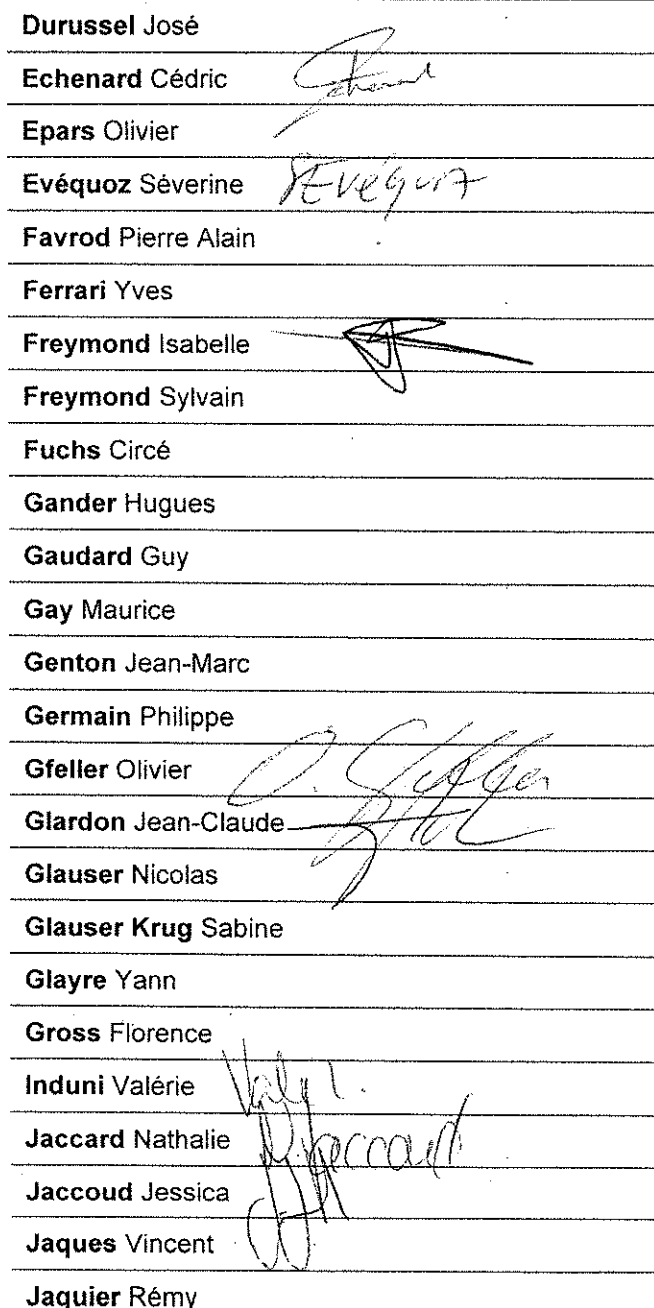 Durussel José
Echenard Cédric
Epars Olivier
Evéquoz Séverine SEvéquoz
Favrod Pierre Alain
Ferrari Yves
Freymond Isabelle
Freymond Sylvain
Fuchs Circé
Gander Hugues
Gaudard Guy
Gay Maurice
Genton Jean-Marc
Germain Philippe
Gfeller Olivier O. Gfeller
Glardon Jean-Claude
Glauser Nicolas
Glauser Krug Sabine
Glayre Yann
Gross Florence
Induni Valérie
Jaccard Nathalie NJaccard
Jaccoud Jessica
Jaques Vincent
Jaquier Rémy